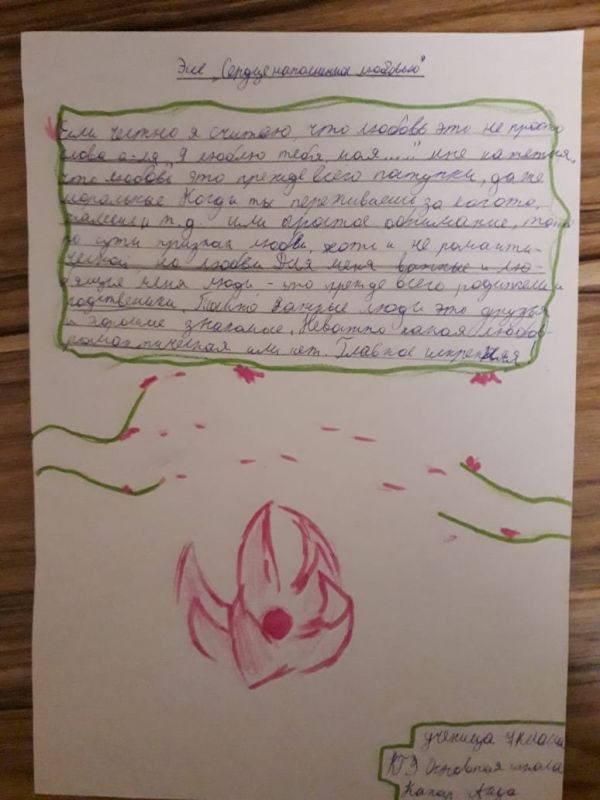 Эссе "Сердце наполнинных любовью"
Если честно я считаю, что любовь это не просто
слова а-ля "Я люблю тебя, моя....." мне кажеться,
что любовь это прежде всего паступки, даже
моральные Когда ты переживаеш за когото,
и т.д. или простое обнимание, тоже
по сути признак любви, хоть и не романти-
ческой, но любви Для меня важные и лю-
бящие меня люди - это прежде всего родители и
родственики. Также важные люди это друзья
и хорошие знакомое. Неважно какая любов
романтическая или нет. Главное искренняя
ученица класса
Основная школа